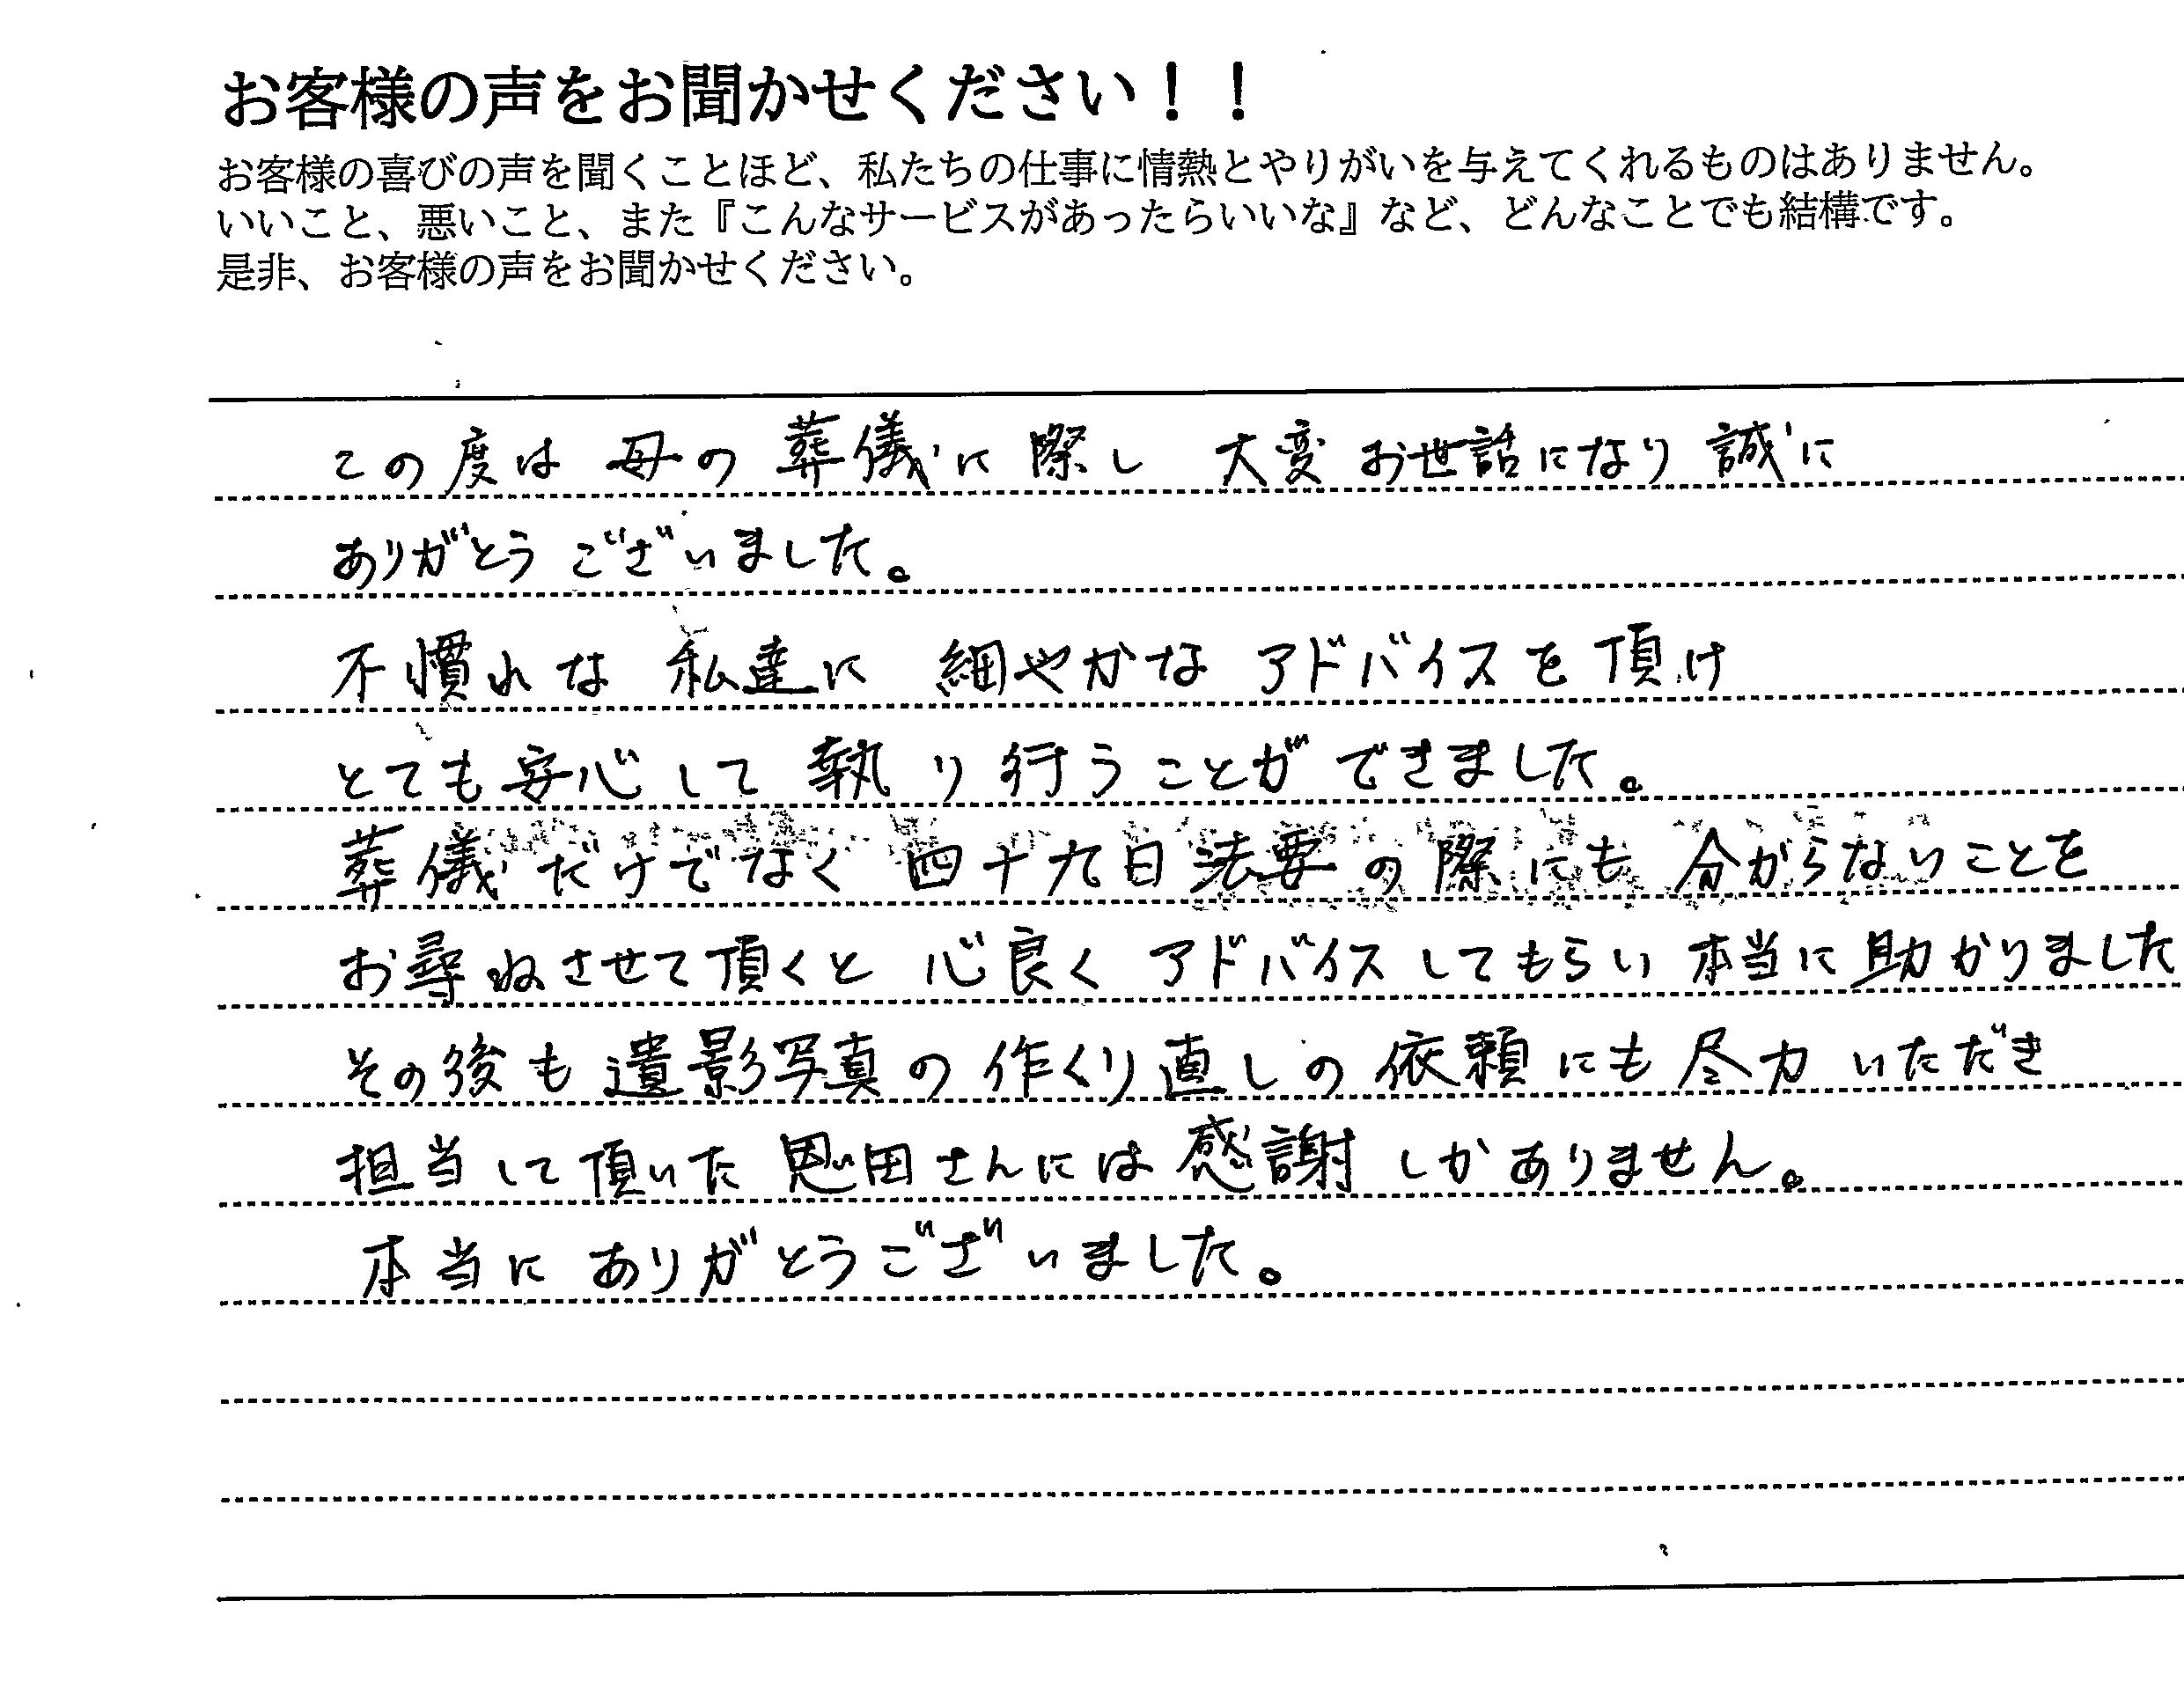 お客様の声をお聞かせください！！
お客様の喜びの声を聞くことほど、私たちの仕事に情熱とやりがいを与えてくれるものはありません。
いいこと、悪いこと、また『こんなサービスがあったらいいな』など、どんなことでも結構です。
是非、お客様の声をお聞かせください。
この度は 母の 葬儀に際し 大変お世話になり 誠に
ありがとう ございました。
不慣れな 私達に 細やかな アドバイスを頂け
とても安心して 執り行うことが できました。
葬儀だけでなく 四十九日法要の際にも 分からないことを
お尋ねさせて頂くと 心良く アドバイスしてもらい 本当に助かりました
その後も遺影写真の作くり直しの依頼にも尽力いただき
担当して頂いた 恩田さんには感謝しかありません。
本当に ありがとうございました。